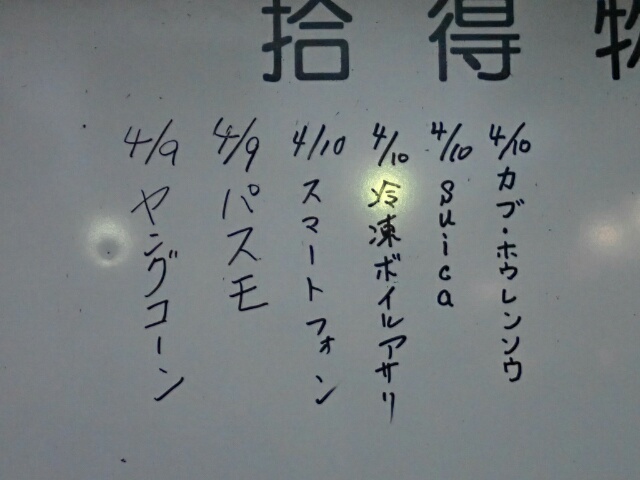 拾得物
4/10 カブ・ホウレンソウ
4/10 suica
4/10 冷凍ボイルアサリ
4/10 スマートフォン
4/9 パスモ
4/9 ヤングコーン